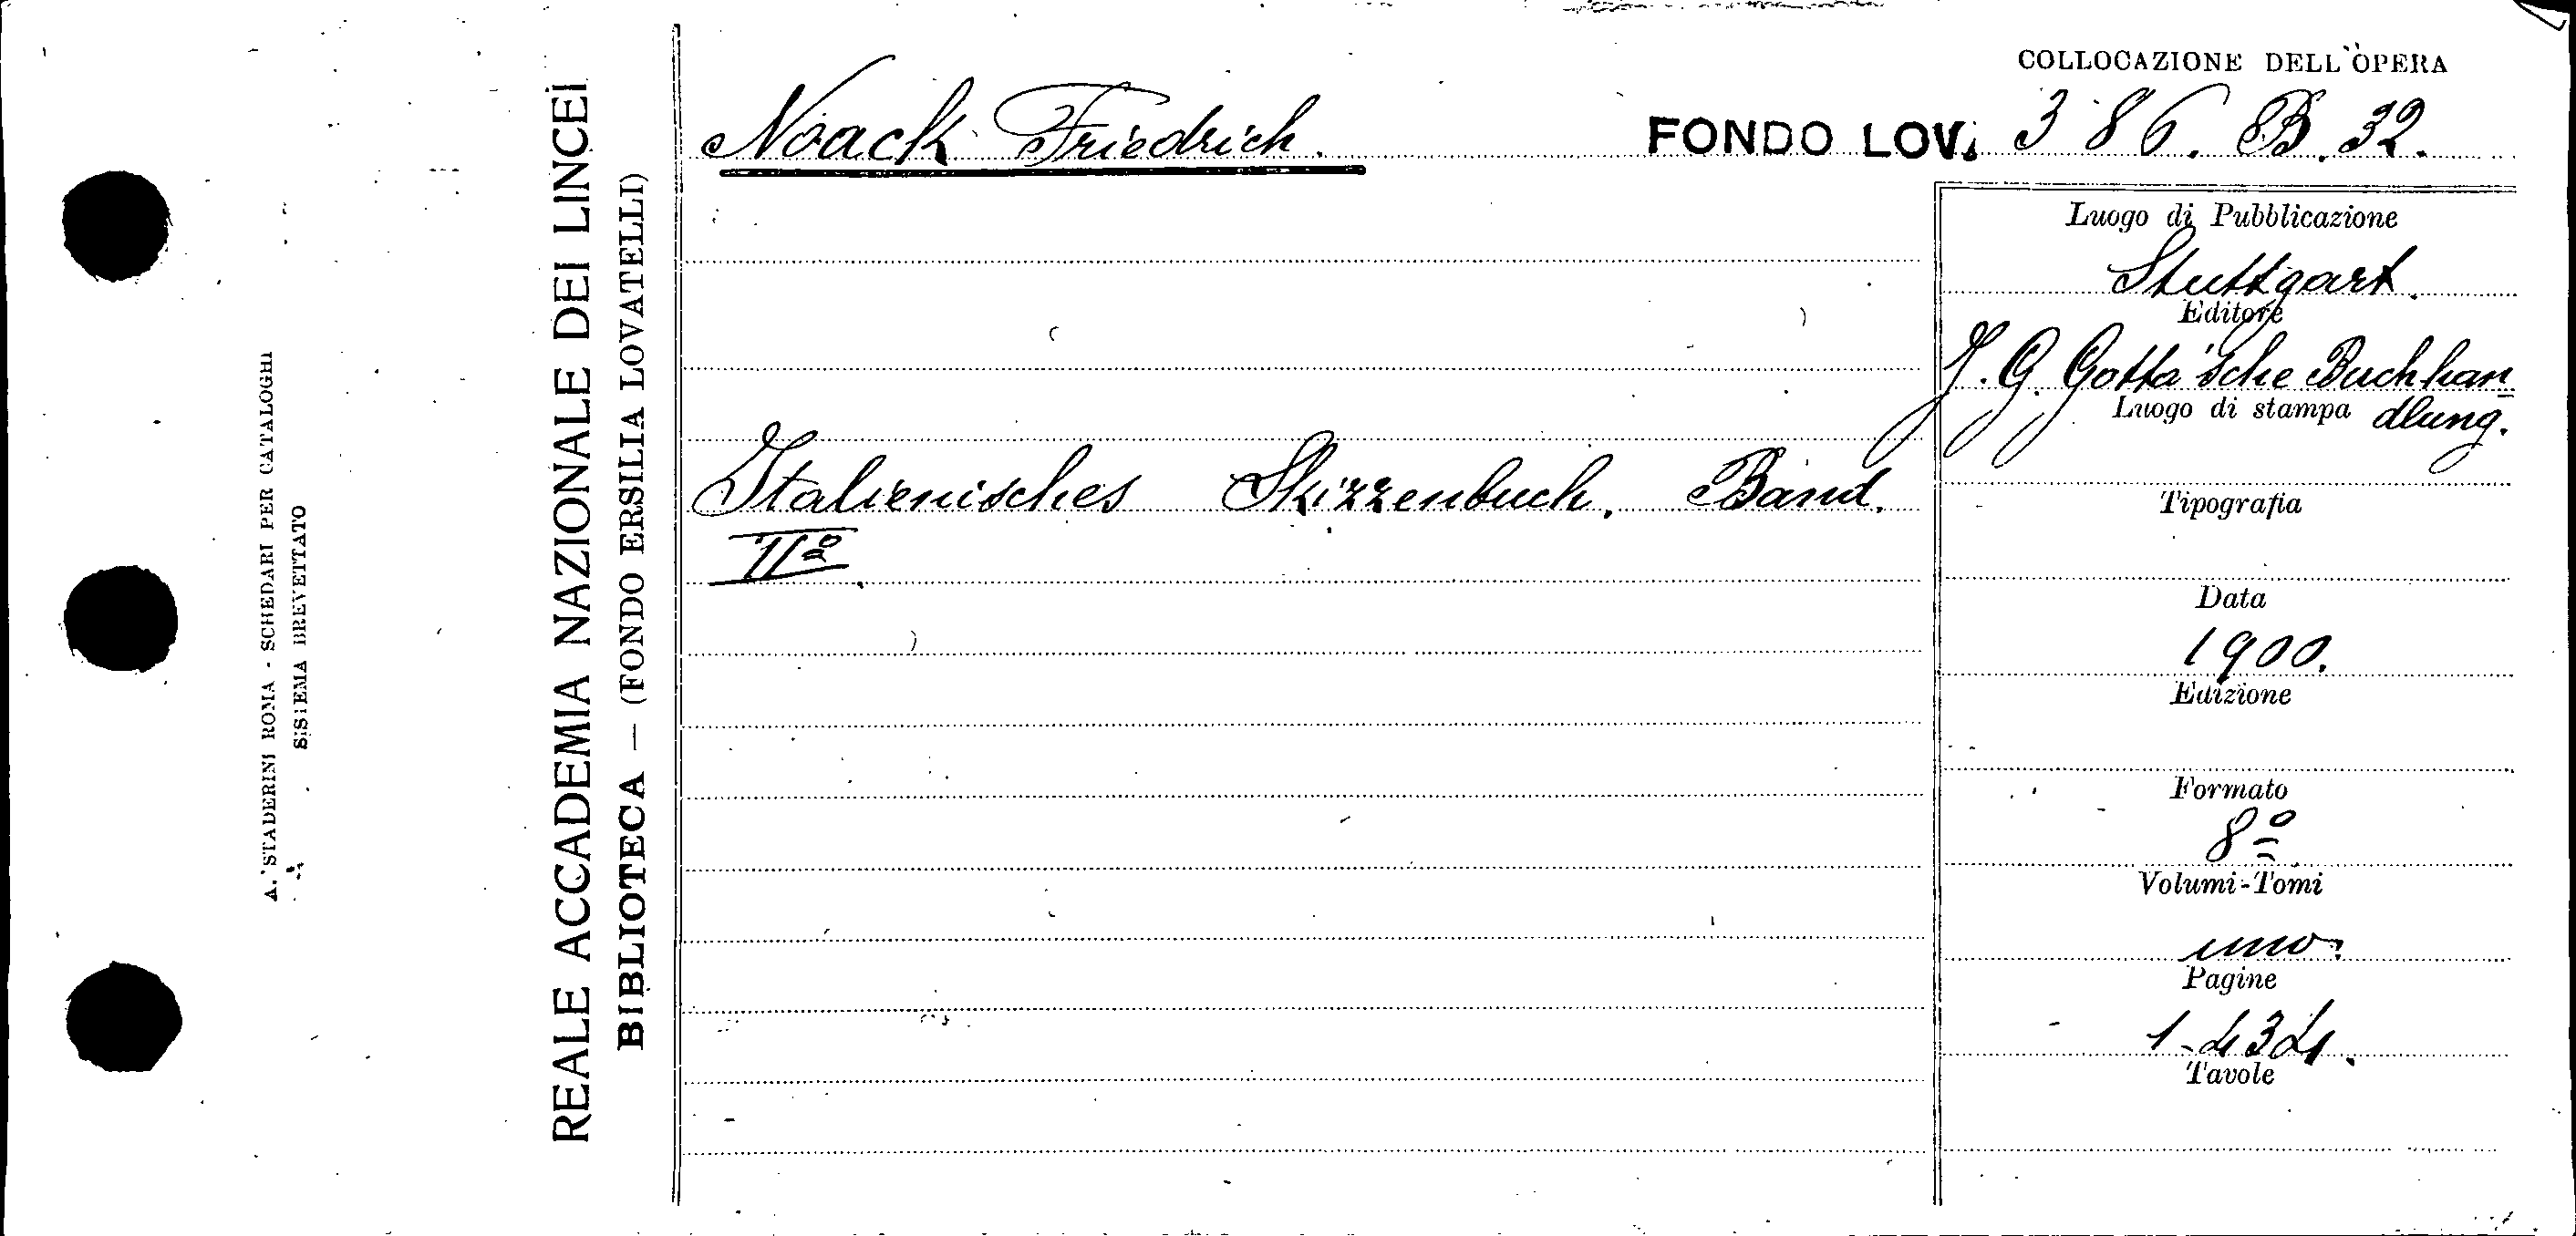 COLLOCAZIONE DELL'OPERA
Noack Friedrich. FONDO LOV. 386. B. 32.
Luogo di Pubblicazione
Stuttgart.
Editore
J. G. Gotta'sche Buchhan
dlung.
Luogo di stampa
Italienisches Skizzenbuch. Band.
IIº.
Tipografia
Data
1900.
Edizione
Formato
8º
Volumi-Tomi
uno.
Pagine
1-434.
Tavole
REALE ACCADEMIA NAZIONALE DEI LINCEI
BIBLIOTECA — (FONDO ERSILIA LOVATELLI)
A. STADERINI ROMA - SCHEDARI PER CATALOGHI
SISTEMA BREVETTATO